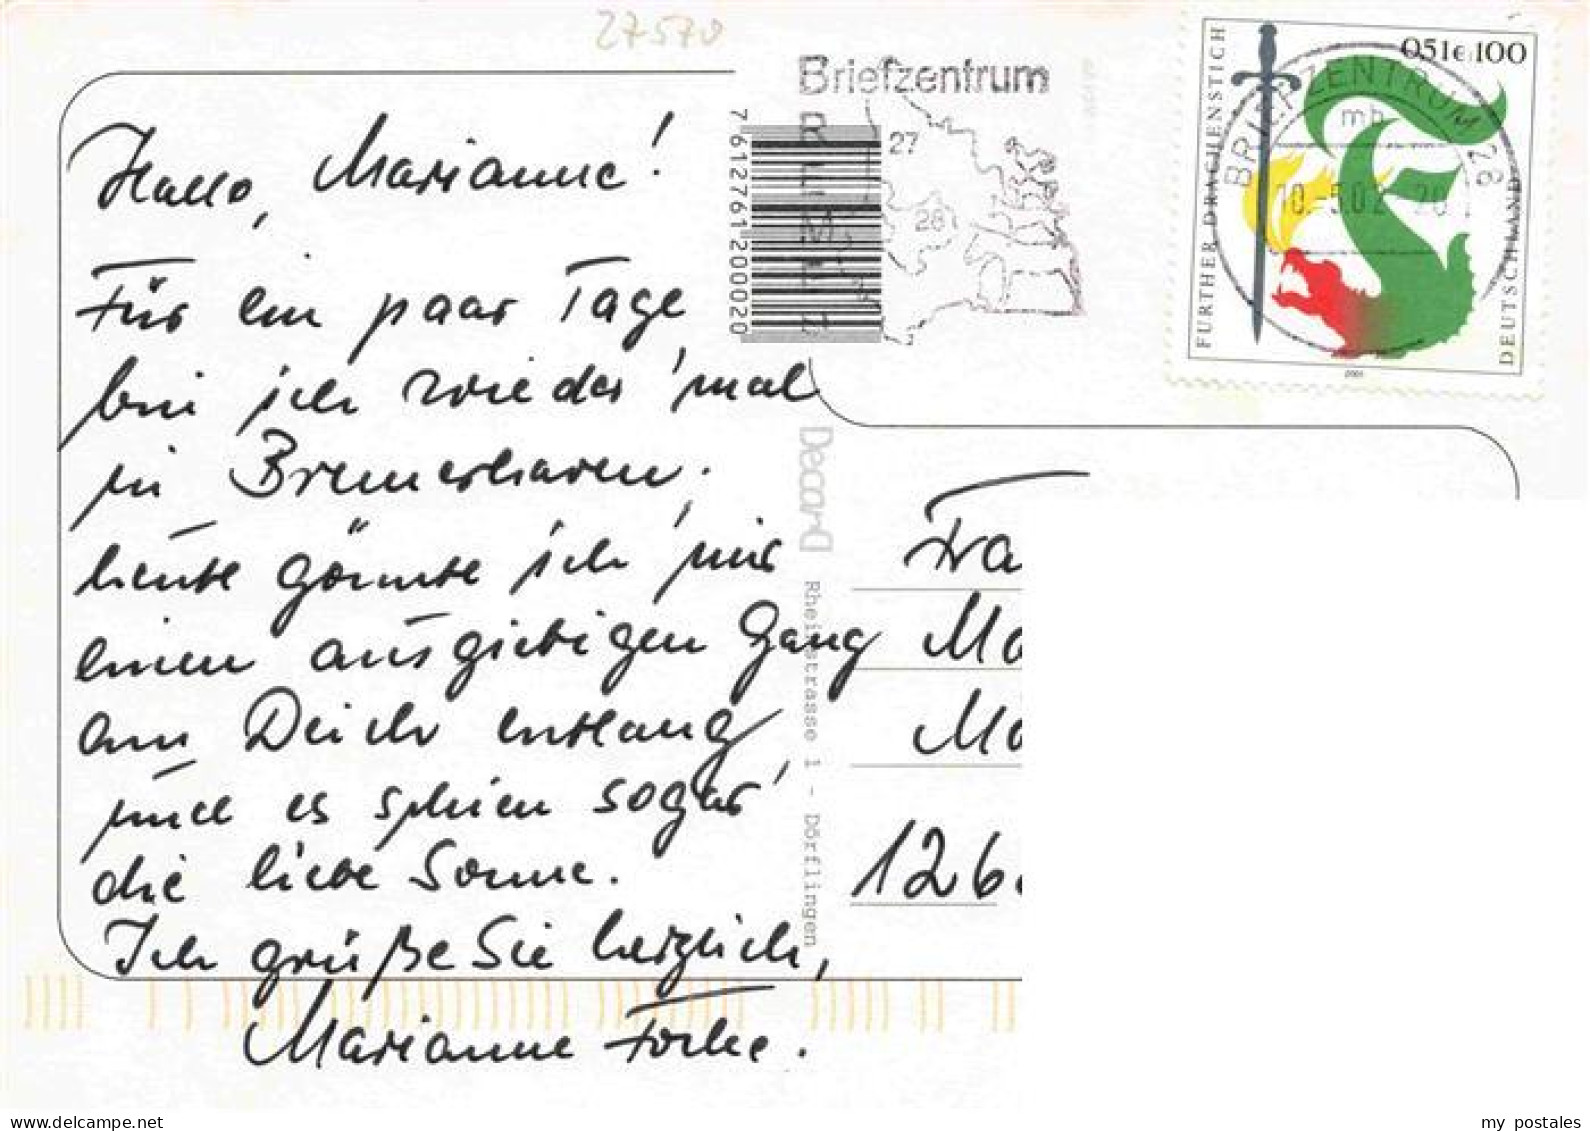 27570
Briefzentrum
27
28
7 612761 200020
FURTHER DRACHENSTICH
0,51€ 100
DEUTSCHLAND
2001
BRIEFZENTRUM 28
mb
10.-5.02-20
Hallo, Marianne!
Für ein paar Tage
bin ich wieder 'mal
in Bremerhaven.
heute gönnte ich mir
einen ausgiebigen Gang
am Deich entlang
und es schien sogar
die liebe Sonne.
Ich grüße Sie herzlich,
Marianne Forke.
Decard
Rheinstrasse 1 - Dörflingen
Fra
Ma
Mo
126
my postales